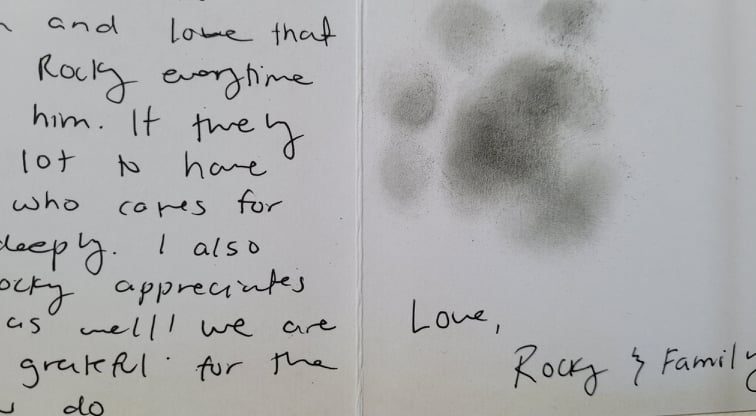 and love that
Rocky everytime
him. It truely
lot to have
who cares for
deeply. I also
ocky appreciates
as well! we are
grateful for the
do
Love,
Rocky & Family